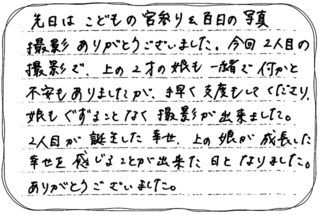 先日は こどもの宮参り&百日の写真
撮影 ありがとうございました。今回 2人目の
撮影で、上の2才の娘も一緒で何かと
不安もありましたが、手早く支度もしてくださり、
娘もぐずることなく撮影が出来ました。
2人目が誕生した幸せ、上の娘が成長した
幸せを感じることが出来た日となりました。
ありがとうございました。